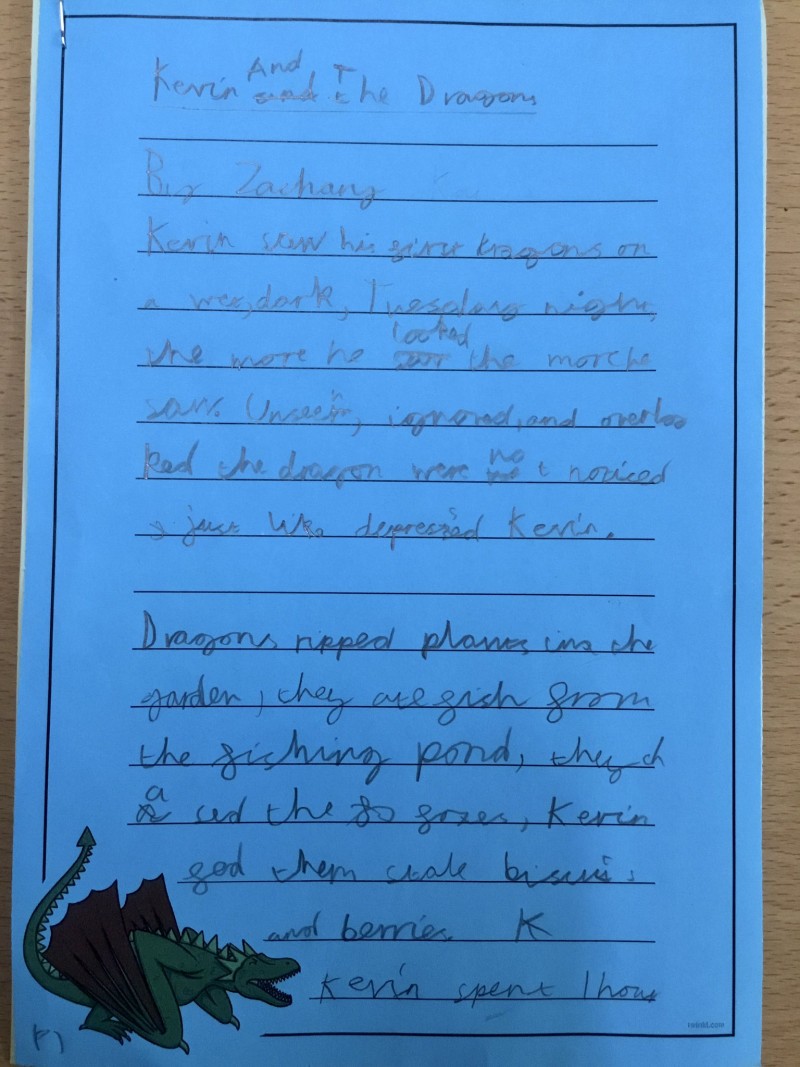 Kevin And The Dragons
By Zachary
Kevin saw his first dragons on
a wet, dark, Tuesday night,
the more he looked the more he
saw. Unseen, ignored, and overloo
ked the dragon were not noticed
just like depressed Kevin.
Dragons ripped plants in the
garden, they ate fish from
the fishing pond, they ch
ased the fo foxes, Kevin
fed them stale biscuits
and berries K
Kevin spent 1 hour
twinkl.com